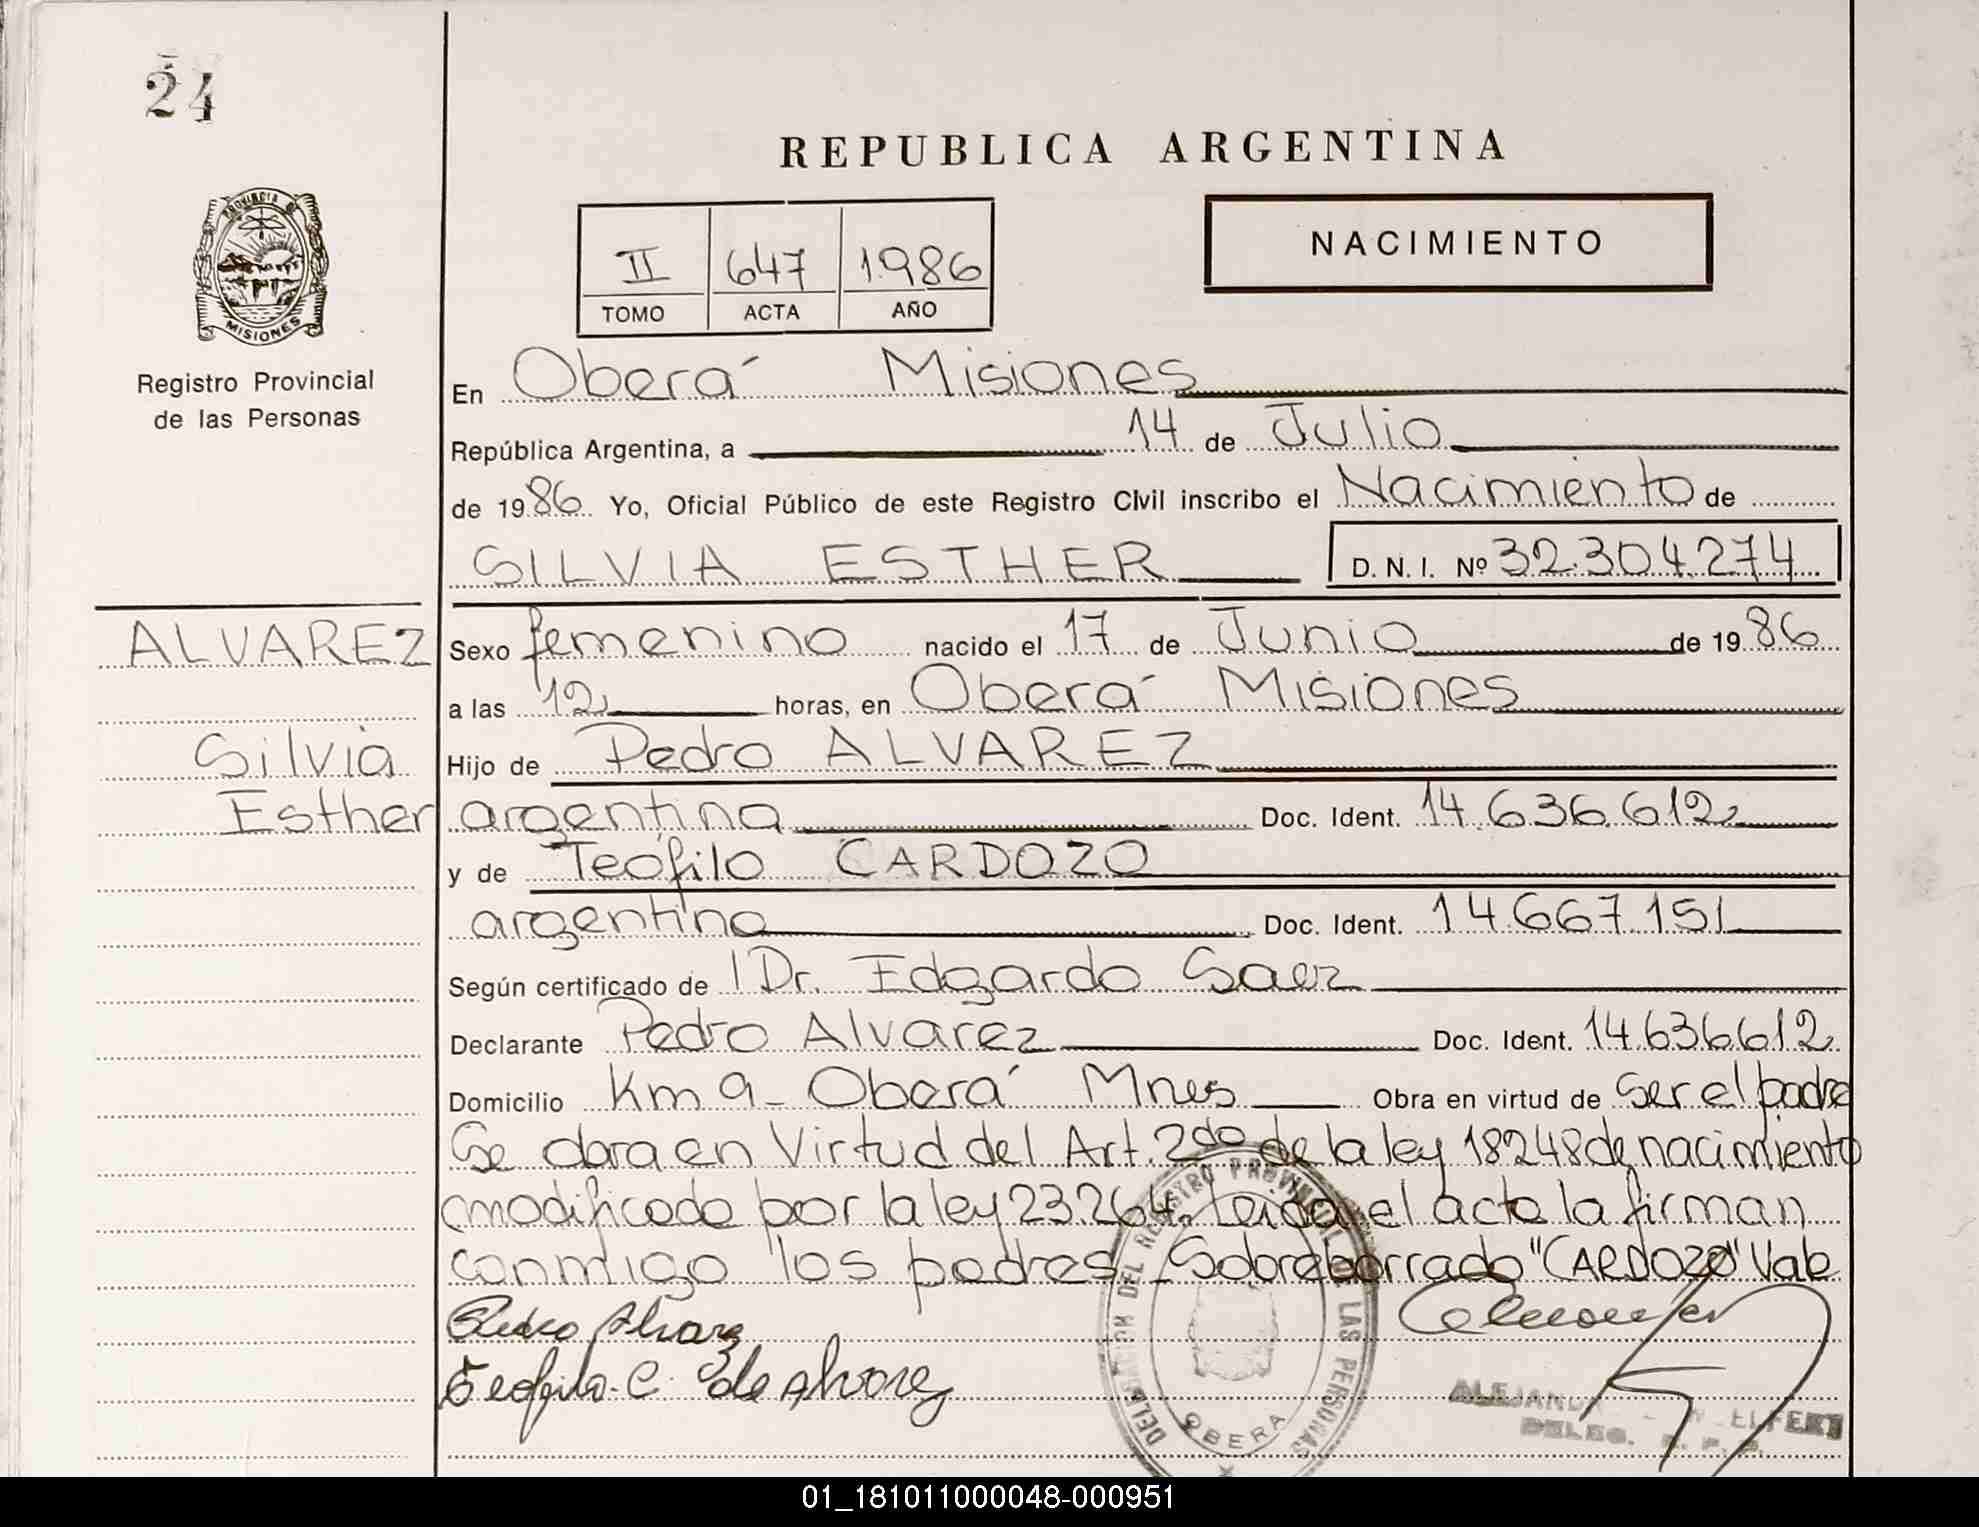 24
REPUBLICA ARGENTINA
PROVINCIA DE
MISIONES
Registro Provincial
de las Personas
II 647 1986
TOMO ACTA AÑO
NACIMIENTO
En Oberá Misiones
República Argentina, a 14 de Julio
de 1986 Yo, Oficial Público de este Registro Civil inscribo el Nacimiento de
SILVIA ESTHER D. N. I. Nº 32.304.274
ALVAREZ
Silvia
Esther
Sexo femenino nacido el 17 de Junio de 1986
a las 12 horas, en Oberá Misiones
Hijo de Pedro ALVAREZ
argentina Doc. Ident. 14.636.612
y de Teófila CARDOZO
argentina Doc. Ident. 14.667.151
Según certificado de Dr. Edgardo Saez
Declarante Pedro Alvarez Doc. Ident. 14.636.612
Domicilio Km 9- Oberá Mnes Obra en virtud de Ser el padre
Se obra en Virtud del Art. 2do de la ley 18248 de nacimiento
modificada por la ley 23.264. Leida el acta la firman
conmigo los padres. Sobreborrado "CARDOZO" Vale
Pedro Alvarez
Teofila C. de Alvarez
DELEGACION DEL REGISTRO PROVINCIAL DE LAS PERSONAS
OBERA
DELEG. R. P. P.
01_181011000048-000951